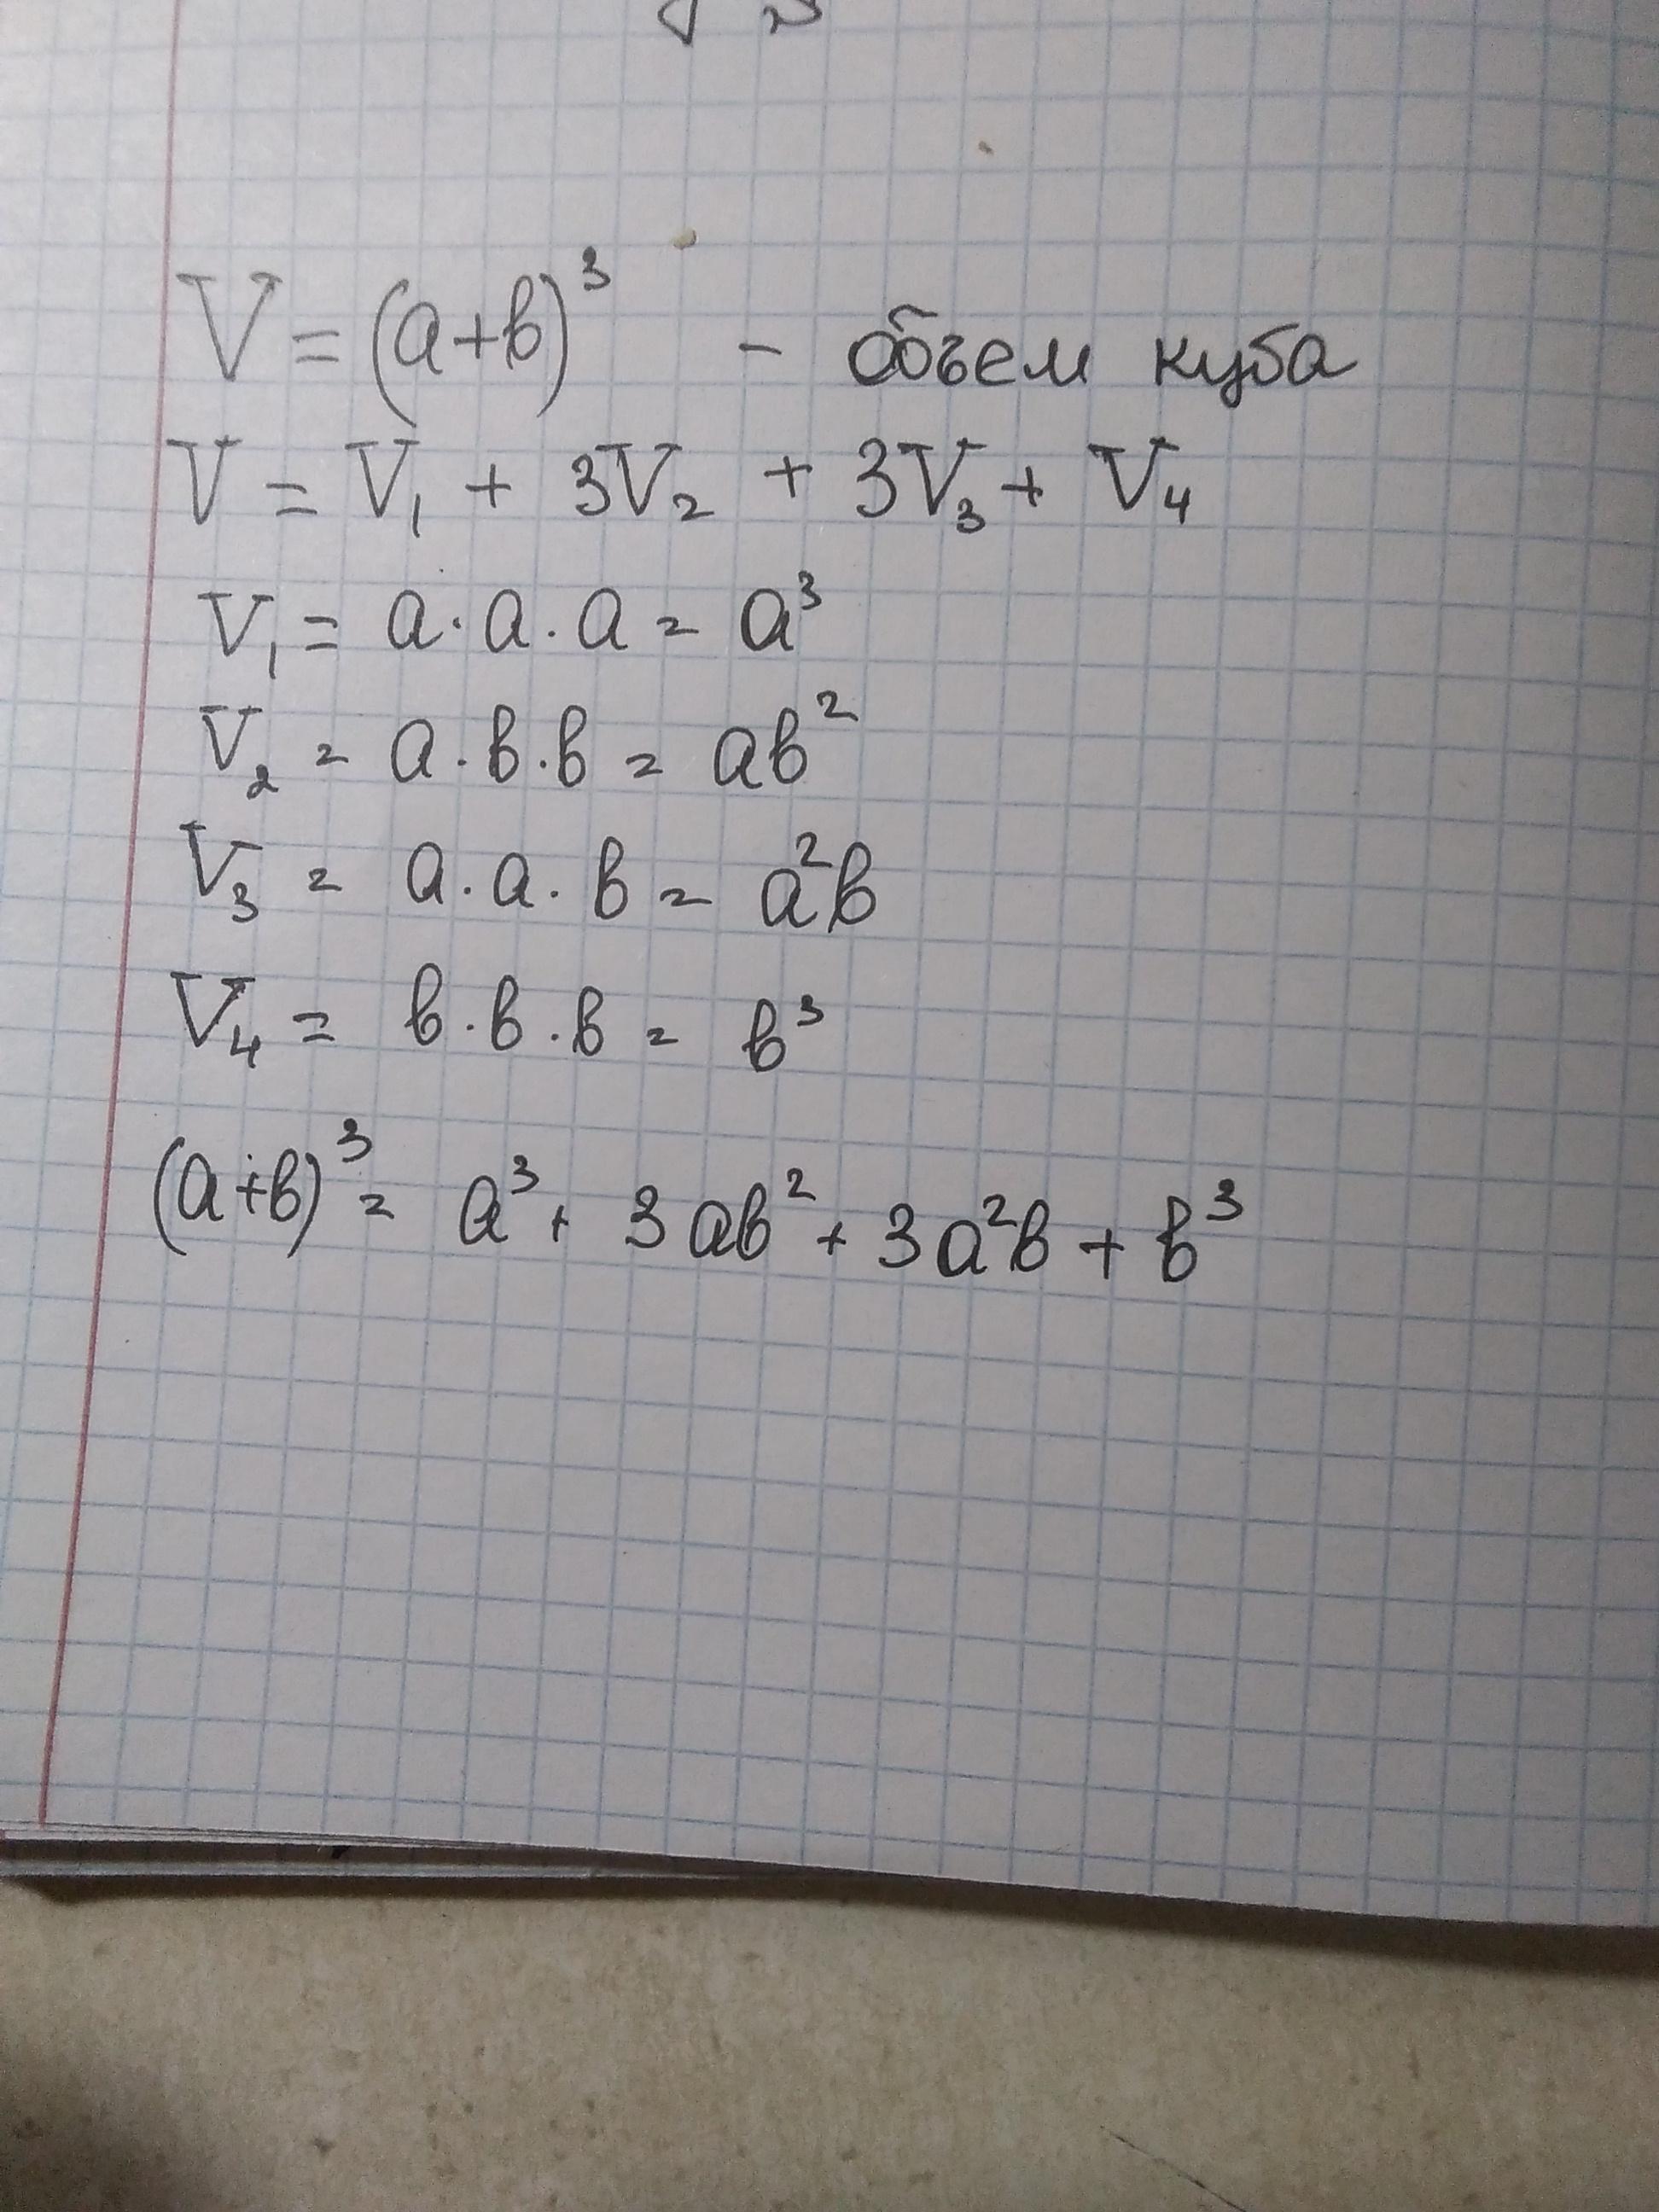 V = (a+b)³ – объем куба
V = V₁ + 3V₂ + 3V₃ + V₄
V₁ = a · a · a = a³
V₂ = a · b · b = ab²
V₃ = a · a · b = a²b
V₄ = b · b · b = b³
(a+b)³ = a³ + 3ab² + 3a²b + b³